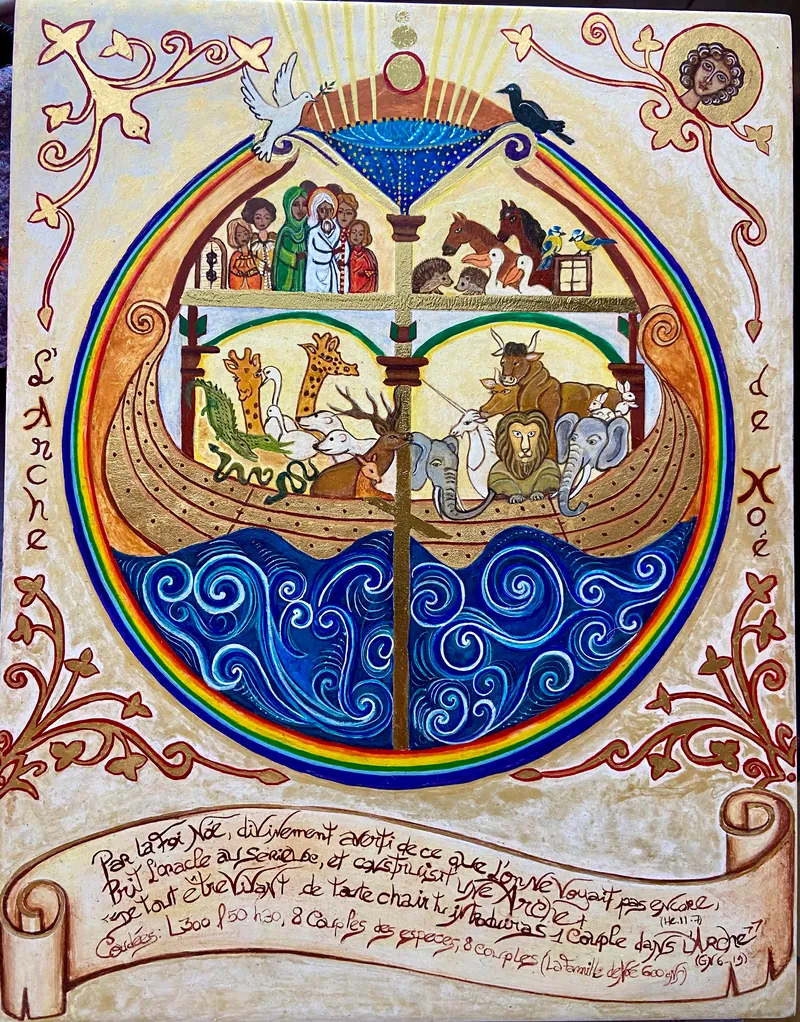 L'Arche
de Noé
Par la Foi Noé, divinement averti de ce que l'on ne voyait pas encore,
Prit l'oracle au serieux, et construisit une Arche +
"De tout être vivant de toute chair tu introduiras 1 couple dans l'Arche"
(He.11.7)
Coudées: L300 l50 h30, 8 Couples des especes, 8 couples (La famille de Noé 600 
(GN 6-19)